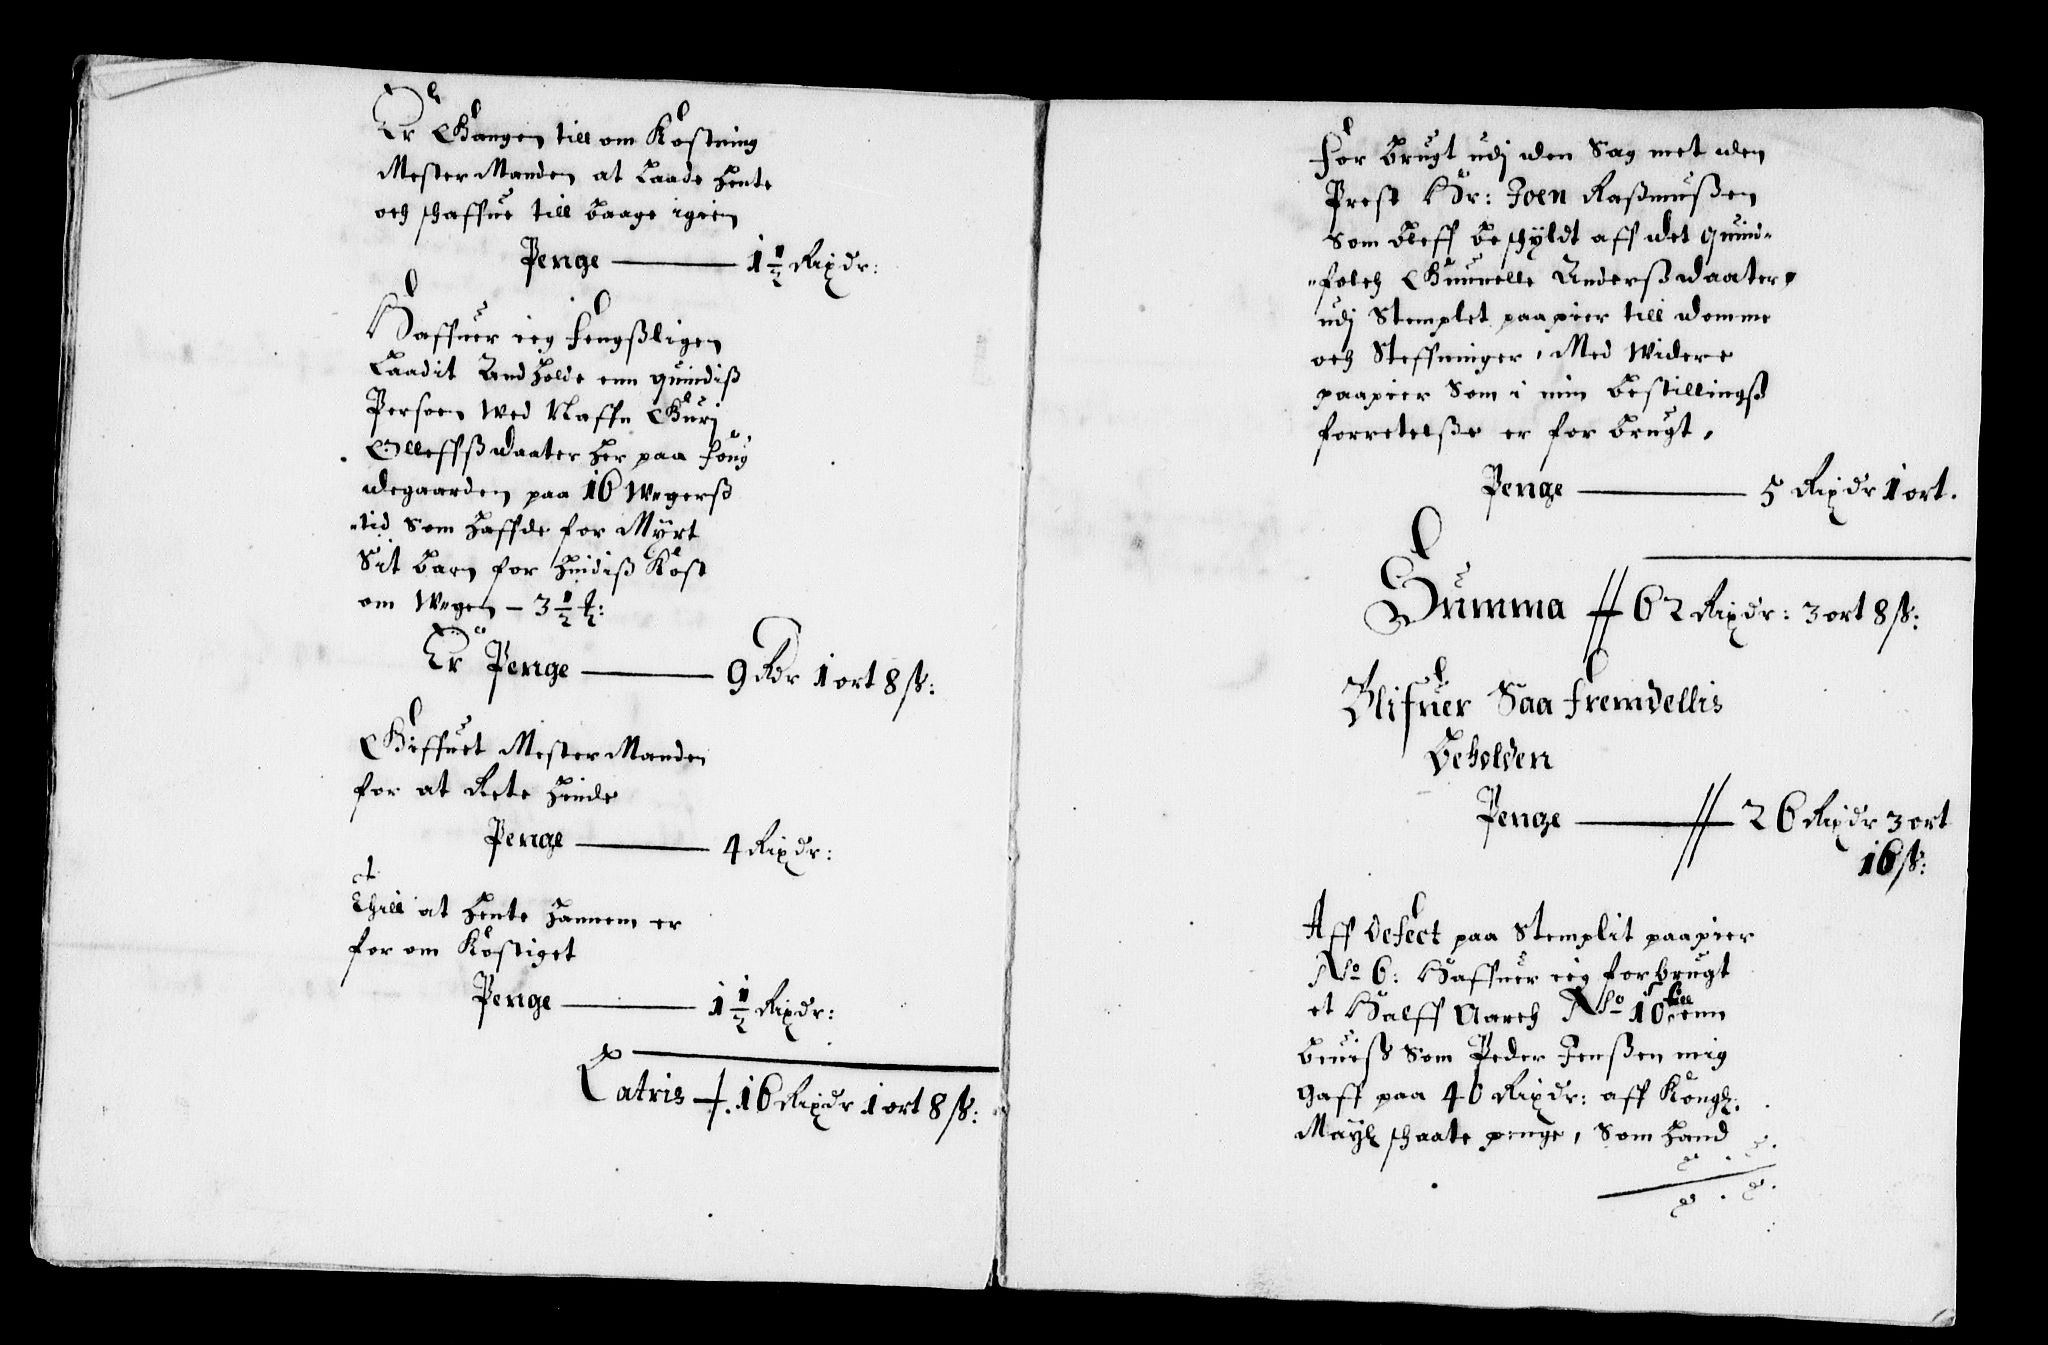 Er Gangen till om Kostning
Mester Manden at Laade Hente
och schaffue till baage igien
Penge — 1 1/2 Rixdr:
Haffuer ieg fengßligen
Laadit Und Holde enn quindiß
Persoen Wed Naffn Guri
Olleffß daater her paa foug
degaarden paa 16 Wgerß
tid Som haffde for Myrt
Sit barn for hindiß Kost
om Wgen – 3 1/2 ₰:
Er Penge — 9 Rdr 1 ort 8 ß:
Giffuet Mester Manden
for at Rete hinde
Penge — 4 Rixdr:
Thill at hente hannem er
for om Kostiget
Penge — 1 1/2 Rixdr:
Latris 16 Rixdr 1 ort 8 ß:
For brugt udj den Sag met den
Prest Hr: Joen Raßmußen
Som bleff beschyldt aff det quind-
folch Gunnelle Anderß daater
udj Stemplet paapier till domme
och Steffninger, Med Widere
paapier Som i min bestillingß
forretelße er for brugt,
Penge — 5 Rixdr 1 ort.
Summa // 62 Rixdr: 3 ort 8 ß:
Blifuer Saa fremdellis
beholden
Penge — // 26 Rixdr 3 ort
16 ß:
Aff Defect paa Stemplit paapier
No 6: Haffuer ieg forbrugt
et Halff Aarch No 10 till enn
beuiß Som Peder Jenßen mig
Gaff paa 40 Rixdr: aff Kongl:
Mayl schaate penge, Som hand